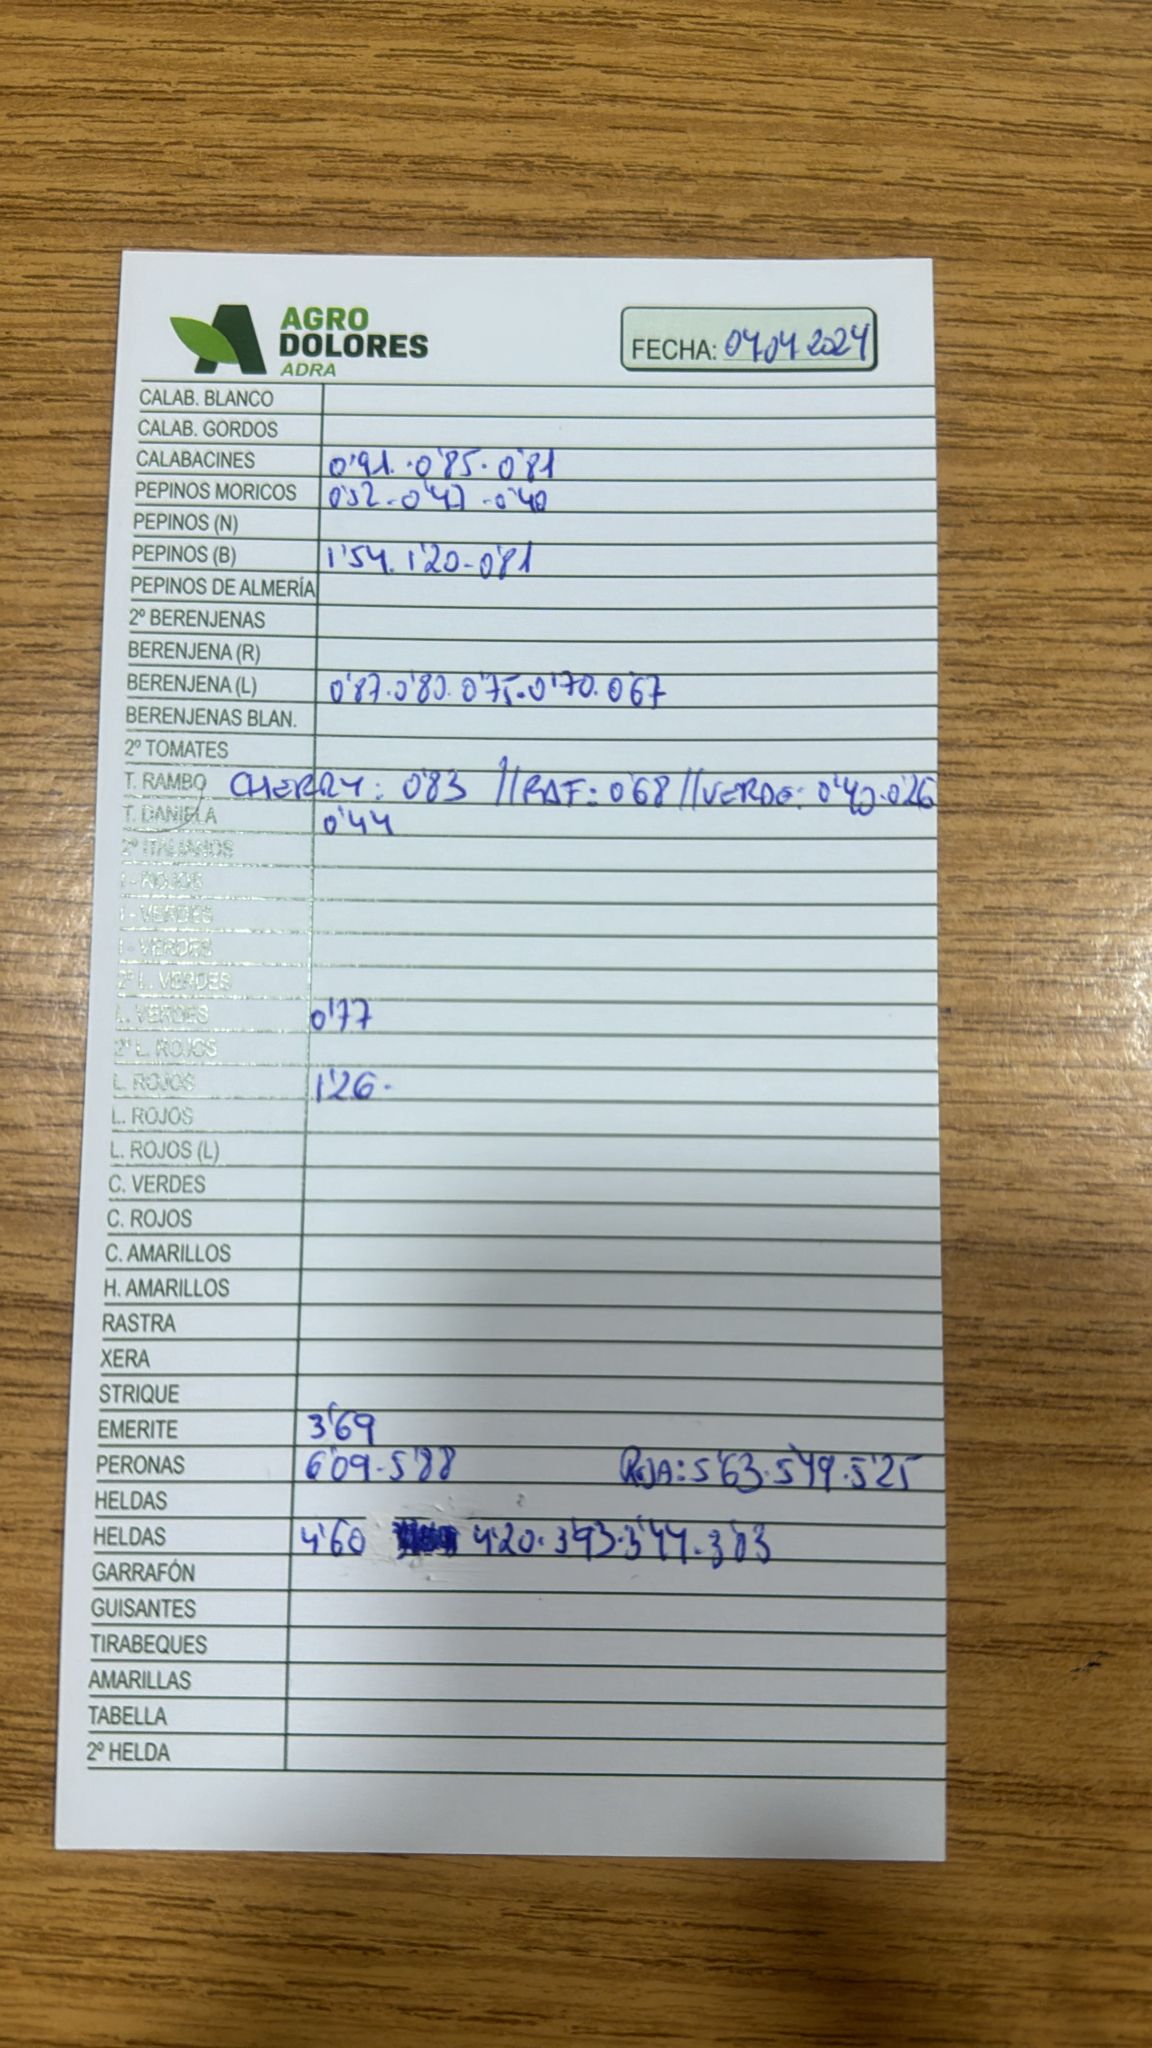 AGRO
DOLORES
ADRA
FECHA: 04 04 2024
CALAB. BLANCO
CALAB. GORDOS
CALABACINES 0'91. 0'85. 0'81
PEPINOS MORICOS 0'52-0'47-0'40
PEPINOS (N)
PEPINOS (B) 1'54. 1'20-0'81
PEPINOS DE ALMERÍA
2º BERENJENAS
BERENJENA (R)
BERENJENA (L) 0'87.0'80.0'75.0'70.0'67
BERENJENAS BLAN.
2º TOMATES
T. RAMBO CHERRY: 0'83 // RAF: 0'68 // VERDE: 0'40.0'26
T. DANIELA 0'44
2º ITALIANOS
I - ROJOS
I - VERDES
I - VERDES
2º L. VERDES
L. VERDES 0'77
2º L. ROJOS
L. ROJOS 1'26.
L. ROJOS
L. ROJOS (L)
C. VERDES
C. ROJOS
C. AMARILLOS
H. AMARILLOS
RASTRA
XERA
STRIQUE
EMERITE 3'69
PERONAS 6'09-5'88 ROJA: 5'63.5'49.5'25
HELDAS
HELDAS 4'60 4'20.3'93.3'44.3'03
GARRAFÓN
GUISANTES
TIRABEQUES
AMARILLAS
TABELLA
2º HELDA